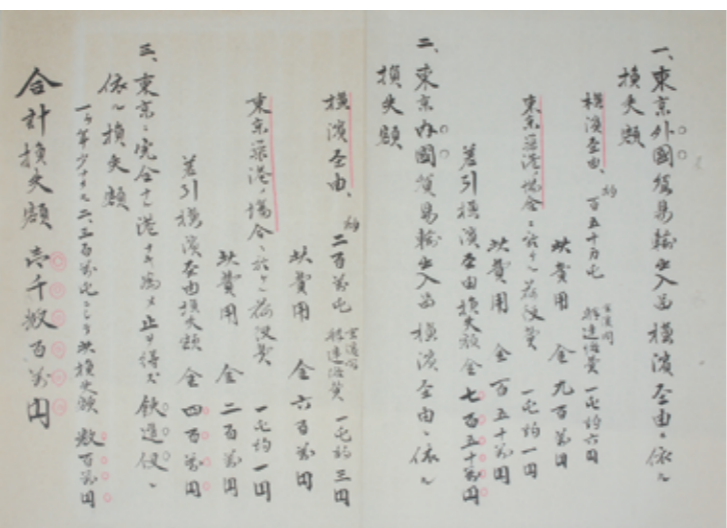 一、東京外國貿易輸出入品横濱経由ニ依ル
損失額
横濱経由、約百五十万屯 京濱間艀運漕費 一屯約六円
此費用 金九百萬円
東京築港ノ場合ニ於ケル荷役費 一屯約一円
此費用 金百五十萬円
差引横濱経由損失額 金七百五十萬円
二、東京内國貿易輸出入品横濱経由ニ依ル
損失額
横濱経由、約二百萬屯 京濱間艀運漕費 一屯約三円
此費用 金六百萬円
東京築港ノ場合ニ於ケル荷役費 一屯約一円
此費用 金二百萬円
差引横濱経由損失額 金四百萬円
三、東京ニ完全ナル港ナキ為メ止ヲ得ズ鉄道便ニ
依ル損失額
一ヶ年少ナクモ二、三百萬屯ニシテ此損失額 数百萬円
合計損失額 壱千数百萬円